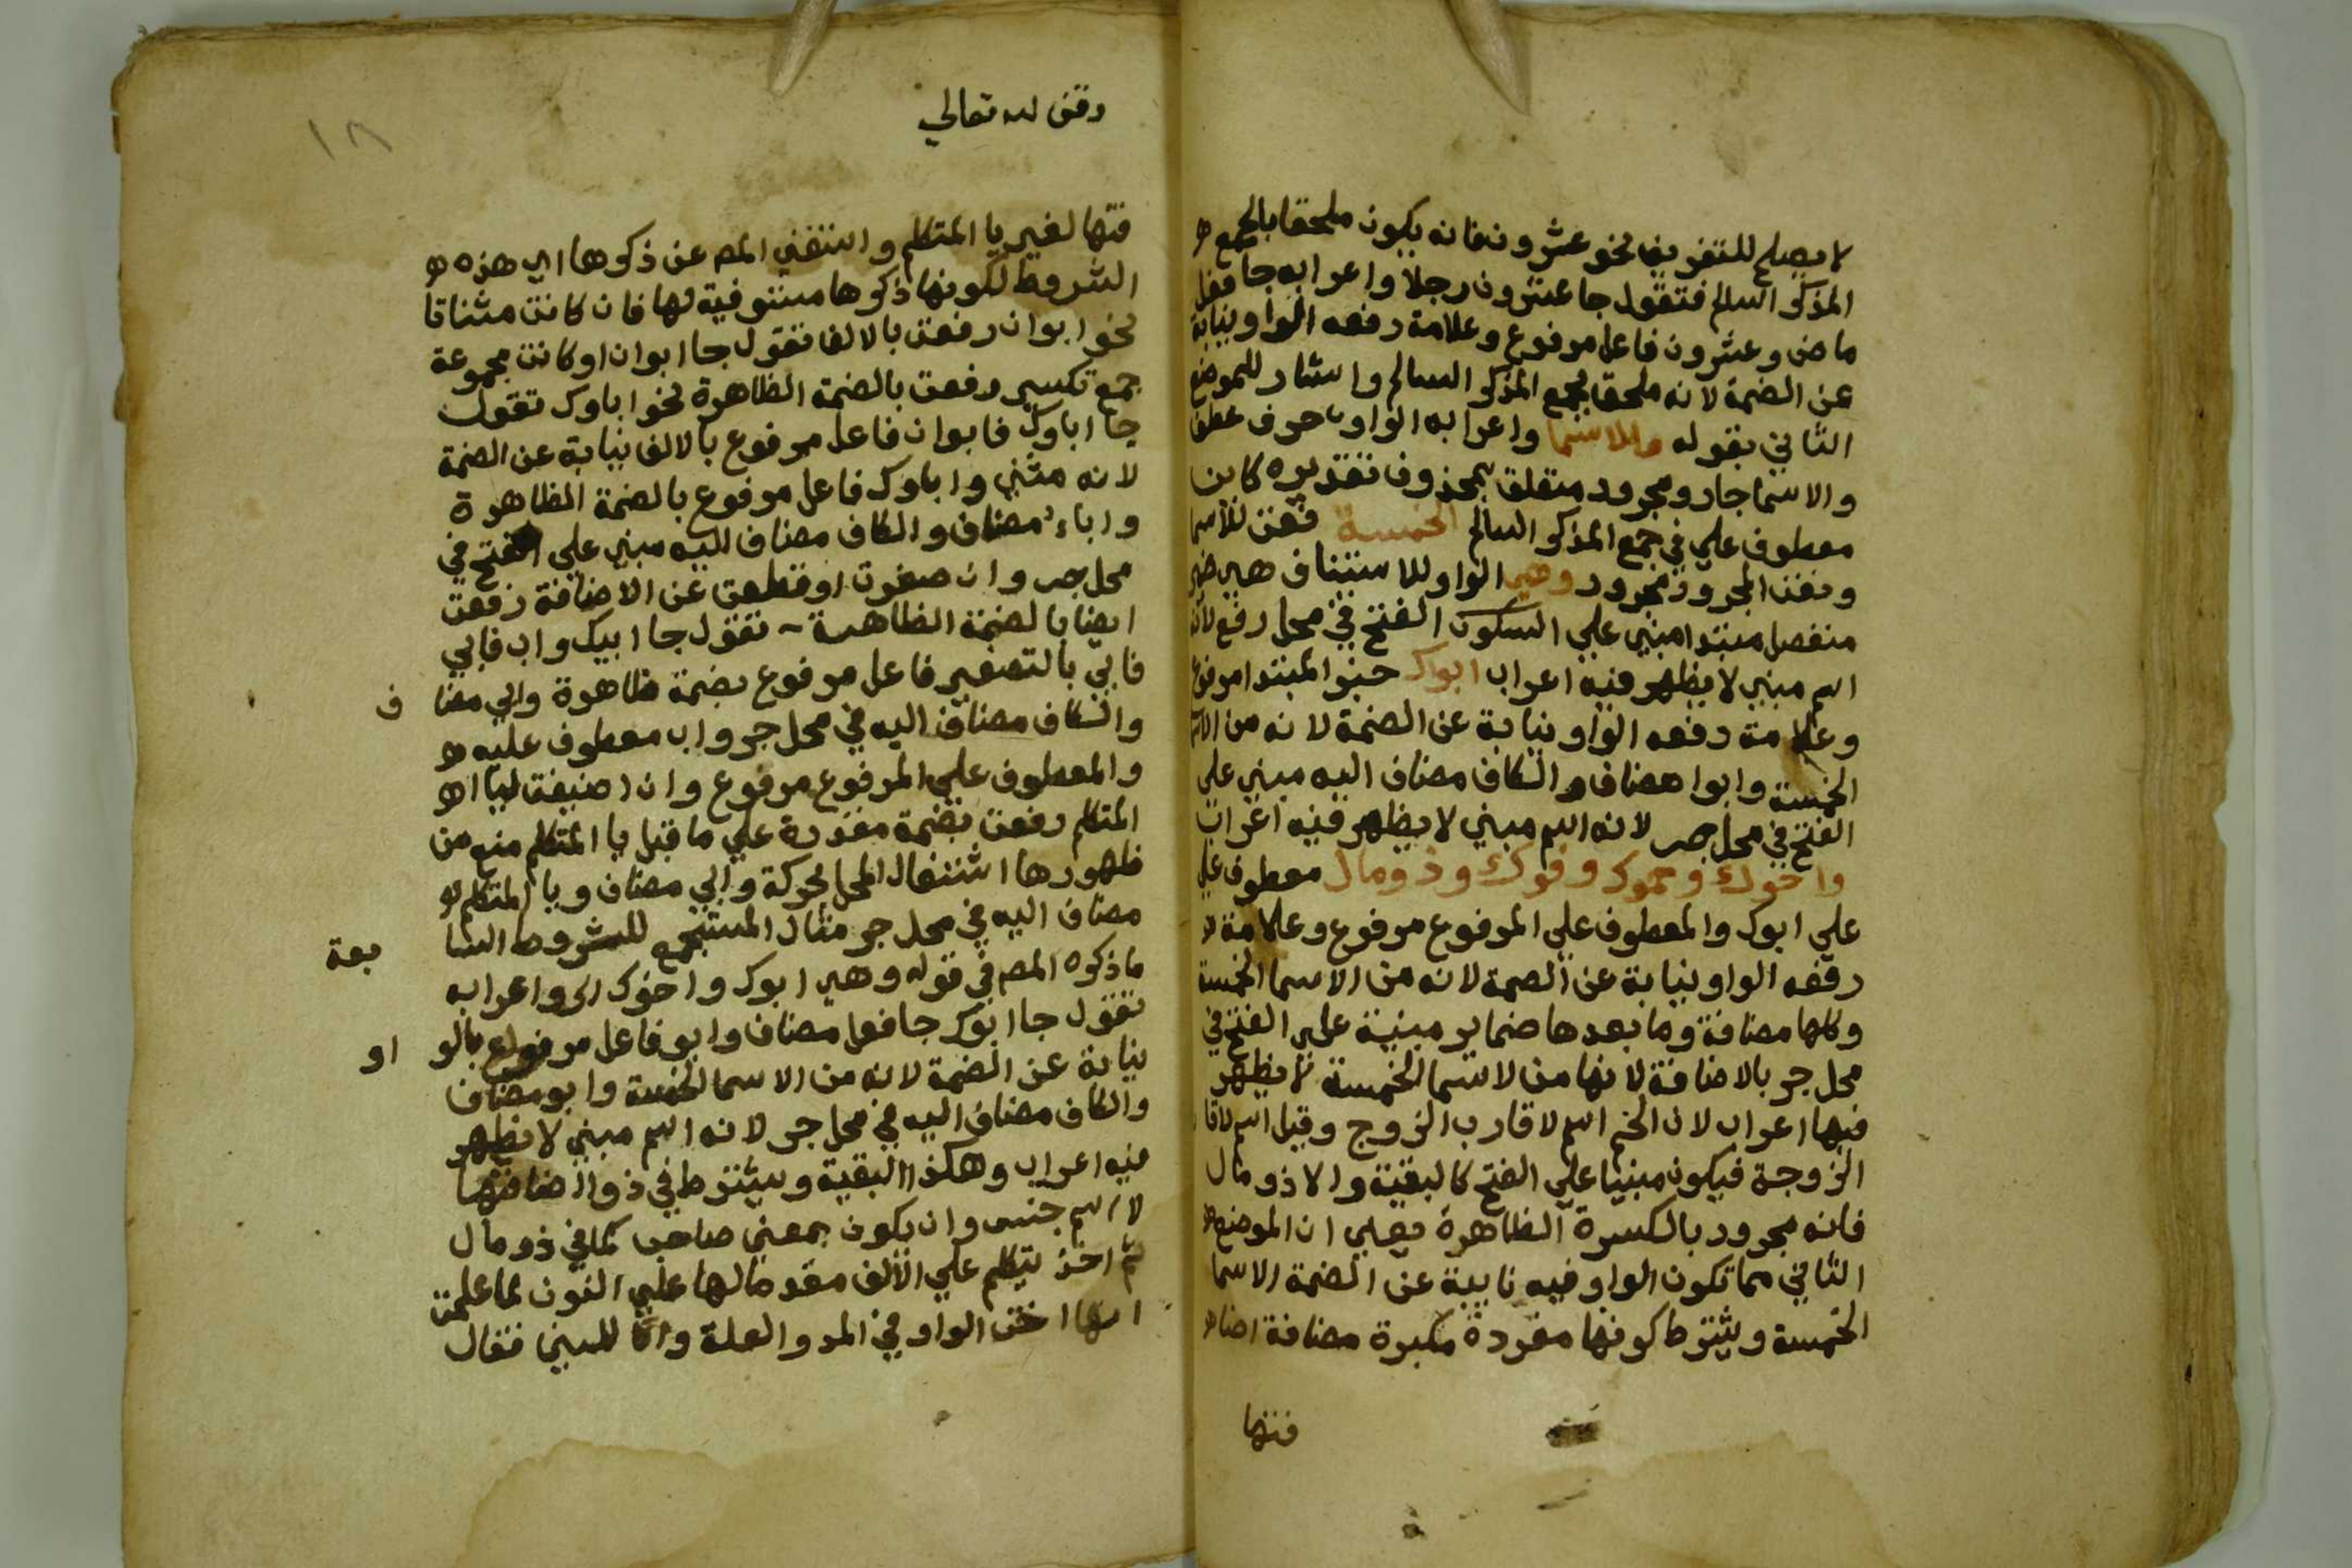 لا يصلح للتفريق نحو عشرون فانه يكون ملحقا بالجمع
المذكر السالم فتقول جا عشرون رجلا واعرابه جا فعل
ماض وعشرون فاعل مرفوع وعلامة رفعه الواو نيابة
عن الضمة لانه ملحق بجمع المذكر السالم واشار للموضع
الثاني بقوله وللاسما واعرابه الواو حرف عطف
والاسما جار ومجرور متعلق بمحذوف تقديره كاين
معطوف علي في جمع المذكر السالم الخمسة نعت للاسما
ونعت المجرور مجرور وهي الواو للاستيناف هي ضمير
منفصل مبتدا مبني علي السكون الفتح في محل رفع لانه
اسم مبني لا يظهر فيه اعراب ابوك خبر المبتدا مرفوع
وعلامة رفعه الواو نيابة عن الضمة لانه من الاسما
الخمسة وابوا مضاف والكاف مضاف اليه مبني علي
الفتح في محل جر لانه اسم مبني لا يظهر فيه اعراب
واخوك وحموك وفوك وذو مال معطوف علي
علي ابوك والمعطوف علي المرفوع مرفوع وعلامة
رفعه الواو نيابة عن الضمة لانه من الاسما الخمسة
وكلها مضافة وما بعدها ضماير مبنية علي الفتح في
محل جر بالاضافة لانها من لاسما الخمسة لا يظهر
فيها اعراب لان الحم اسم لاقارب الزوج وقيل اسم لاقا
الزوجة فيكون مبنيا علي الفتح كالبقية والا ذو مال
فانه مجرور بالكسرة الظاهرة يعني ان الموضع
الثاني مما تكون الواو فيه نايبة عن الضمة الاسما
الخمسة ويشترط كونها مفردة مكبرة مضافة اضا
فتها
وقف لله تعالي
١٨
فتها لغير يا المتكلم واستغني المص عن ذكرها اي هذه
الشروط لكونها ذكرها مستوفية لها فان كانت مثناتا
نحو ابوان رفعت بالالف تقول جا ابوان او كانت مجموعة
جمع تكسير رفعت بالضمة الظاهرة نحو اباوك تقول
جا اباوك فابوان فاعل مرفوع بالالف نيابة عن الضمة
لانه مثني واباوك فاعل مرفوع بالضمة الظاهرة
واباء مضاف والكاف مضاف اليه مبني علي الفتح في
محل جر وان صغرت او قطعت عن الاضافة رفعت
ايضا بالضمة الظاهرة تقول جا ابيك واب فابي
فابي بالتصغير فاعل مرفوع بضمة ظاهرة وابي مضا ف
والكاف مضاف اليه في محل جر واب معطوف عليه
والمعطوف علي المرفوع مرفوع وان اضيفت ليا
المتكلم رفعت بضمة مقدرة علي ما قبل يا المتكلم منع من
ظهورها اشتغال المحل بحركة وابي مضاف ويا المتكلم
مضاف اليه في محل جر مثال المستجمع للشروط السا بعة
ما ذكره المص في قوله وهي ابوك واخوك الي واعرابه
تقول جا ابوك جا فعل مضاف وابو فاعل مرفوع بالو او
نيابة عن الضمة لانه من الاسما الخمسة وابو مضاف
والكاف مضاف اليه في محل جر لانه اسم مبني لا يظهر
فيه اعراب وهكذا البقية ويشترط في ذو اضافتها
لا اسم جنس وان يكون بمعني صاحب كما في ذو مال
ثم اخذ يتكلم علي الالف مقدما لها علي النون لما علمت
انها اخت الواو في المد والعلة فقال